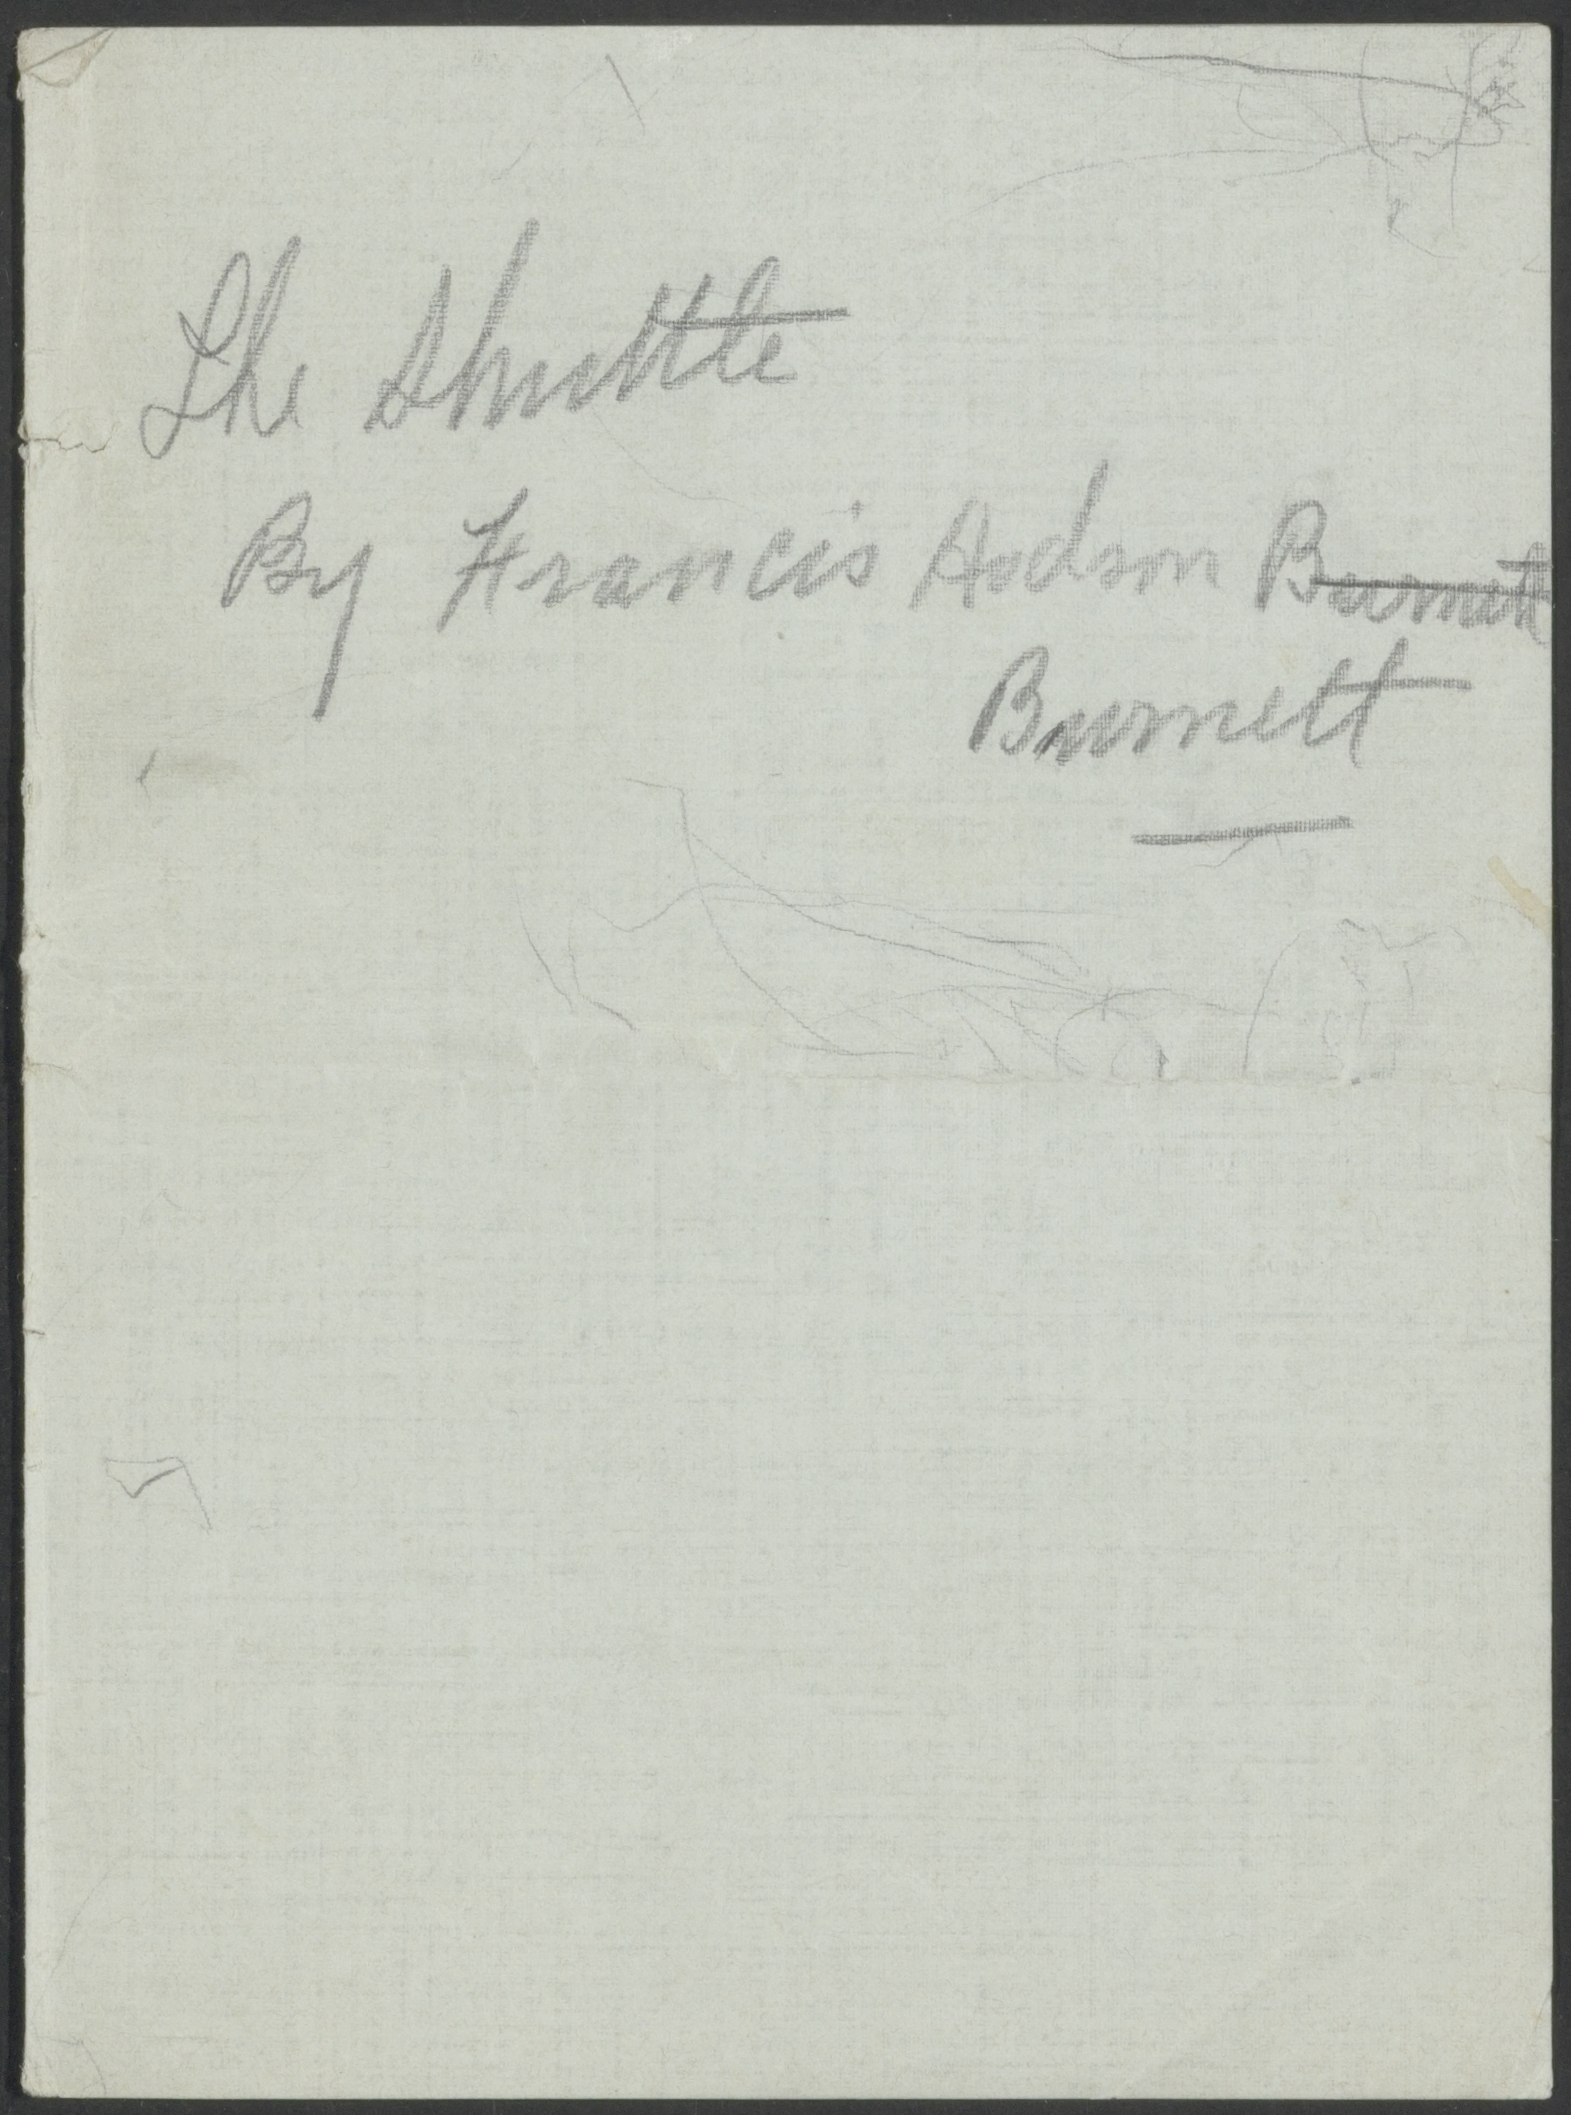 The Shuttle
By Francis Hodson Burnett
Burnett